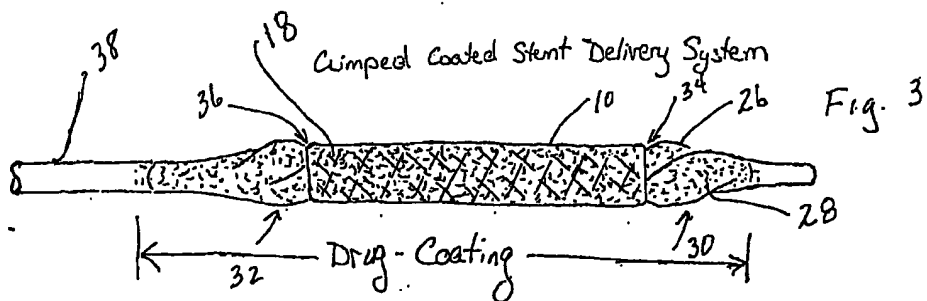 38
18
Crimped Coated Stent Delivery System
36
10
34
26
Fig. 3
28
32
Drug-Coating
30